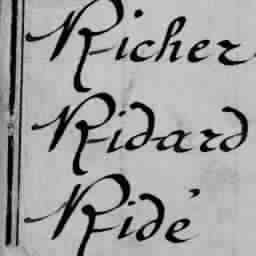 Richer
Ridard
Ridé